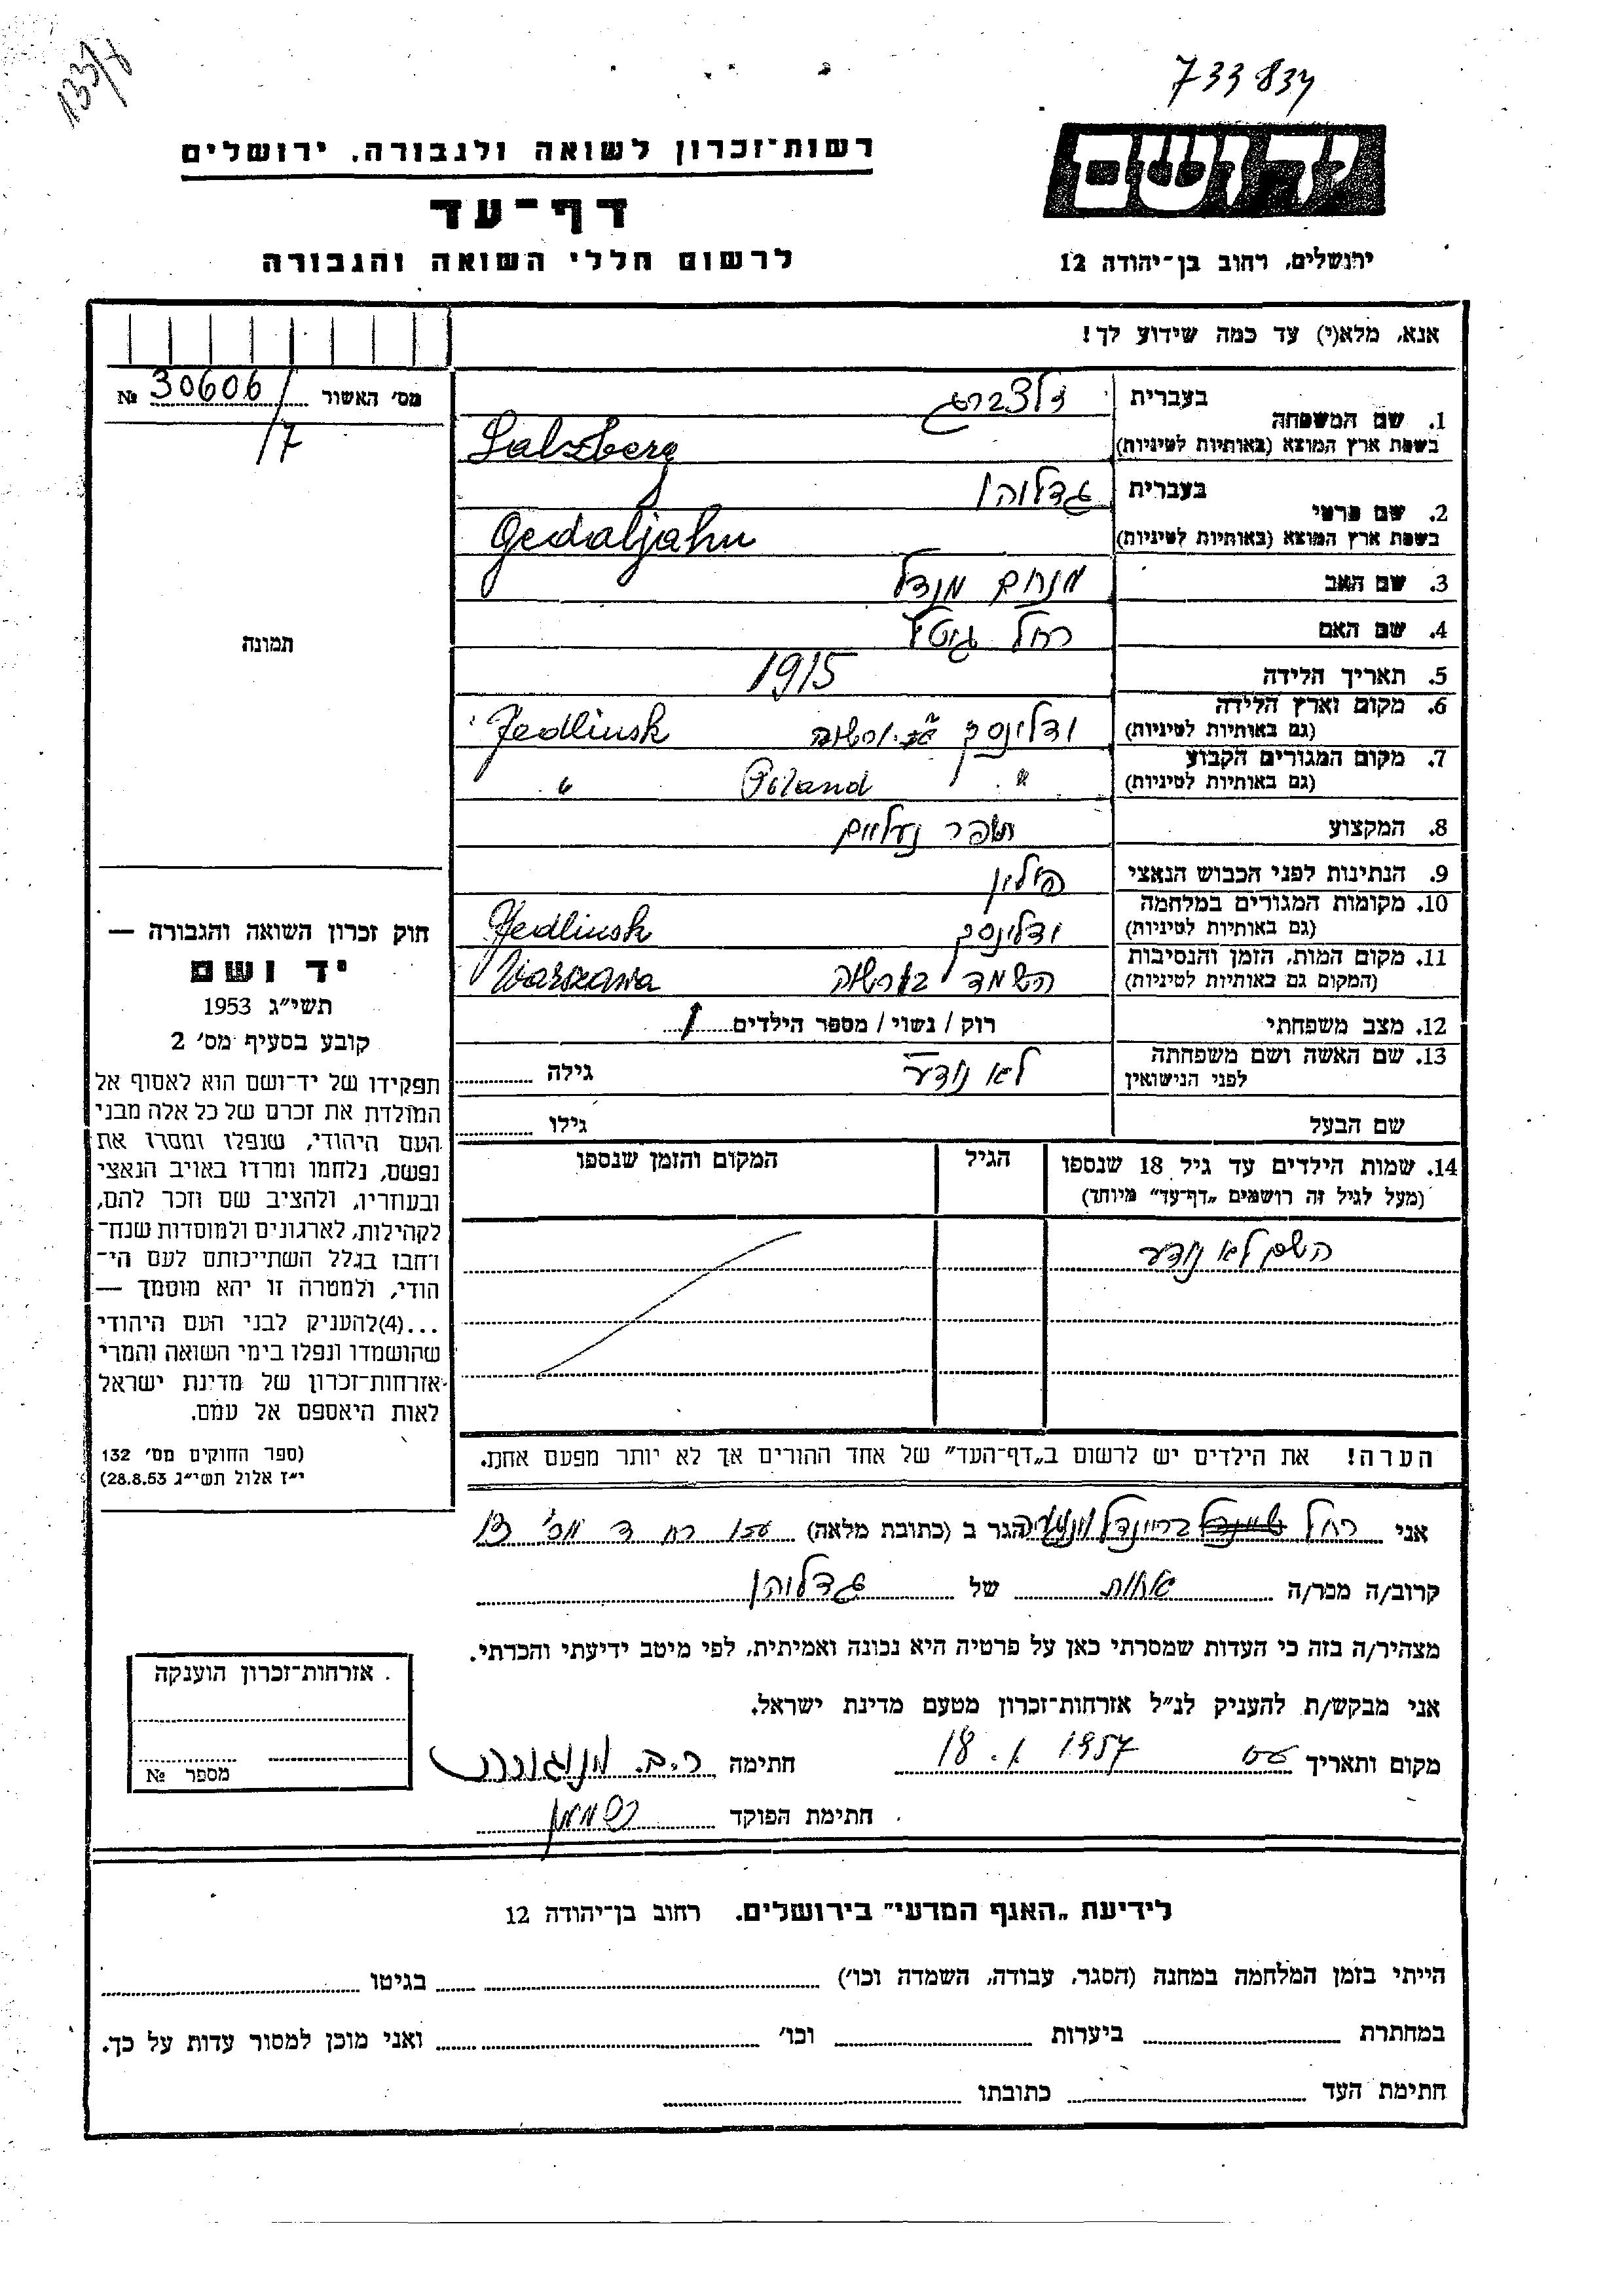 133/8
733834
יד ושם
רשות־זכרון לשואה ולגבורה, ירושלים
דף־עד
לרשום חללי השואה והגבורה
ירושלים, רחוב בן־יהודה 12
אנא, מלא(י) עד כמה שידוע לך!
מס׳ האשור 30606/ №
17
1. שם המשפחה בעברית זלצברג
בשפת ארץ המוצא (באותיות לטיניות) Salzberg
2. שם פרטי בעברית גדליהו
בשפת ארץ המוצא (באותיות לטיניות) Gedaljahu
3. שם האב מנחם מנדל
4. שם האם רחל
5. תאריך הלידה 1915
6. מקום וארץ הלידה (גם באותיות לטיניות) ידלינסק Jedlinsk
7. מקום המגורים הקבוע (גם באותיות לטיניות) " Poland "
8. המקצוע תופר נעליים
9. הנתינות לפני הכבוש הנאצי פולין
10. מקומות המגורים במלחמה (גם באותיות לטיניות) ידלינסק Jedlinsk
11. מקום המות, הזמן והנסיבות (המקום גם באותיות לטיניות) הושמד בורשה Warszawa
12. מצב משפחתי רוק / נשוי / מספר הילדים 1
13. שם האשה ושם משפחתה לפני הנישואין לא נודע גילה
שם הבעל גילו
14. שמות הילדים עד גיל 18 שנספו הגיל המקום והזמן שנספו
(מעל לגיל זה רושמים „דף־עד” מיוחד)
השם לא נודע
הערה! את הילדים יש לרשום ב„דף־העד” של אחד ההורים אך לא יותר מפעם אחת.
תמונה
חוק זכרון השואה והגבורה —
יד ושם
תשי״ג 1953
קובע בסעיף מס׳ 2
תפקידו של יד־ושם הוא לאסוף אל
המולדת את זכרם של כל אלה מבני
העם היהודי, שנפלו ומסרו את
נפשם, נלחמו ומרדו באויב הנאצי
ובעוזריו, ולהציב שם וזכר להם,
לקהילות, לארגונים ולמוסדות שנח־
רחבו בגלל השתייכותם לעם הי־
הודי, ולמטרה זו יהא מוסמך —
...(4)להעניק לבני העם היהודי
שהושמדו ונפלו בימי השואה והמרי
אזרחות־זכרון של מדינת ישראל
לאות היאספם אל עמם.
(ספר החוקים מס׳ 132
י״ז אלול תשי״ג 28.8.53)
אני רחל בריינדל הגר ב (כתובת מלאה) 13
קרוב/ה מכר/ה אחות של גדליהו
מצהיר/ה בזה כי העדות שמסרתי כאן על פרטיה היא נכונה ואמיתית, לפי מיטב ידיעתי והכרתי.
אני מבקש/ת להעניק לנ״ל אזרחות־זכרון מטעם מדינת ישראל.
מקום ותאריך 18.1.1957 חתימה ר.ב.
חתימת הפוקד
אזרחות־זכרון הוענקה
מספר №
לידיעת „האגף המדעי” בירושלים, רחוב בן־יהודה 12
הייתי בזמן המלחמה במחנה (הסגר, עבודה, השמדה וכו׳) בגיטו
במחתרת ביערות וכו׳ ואני מוכן למסור עדות על כך.
חתימת העד כתובתו